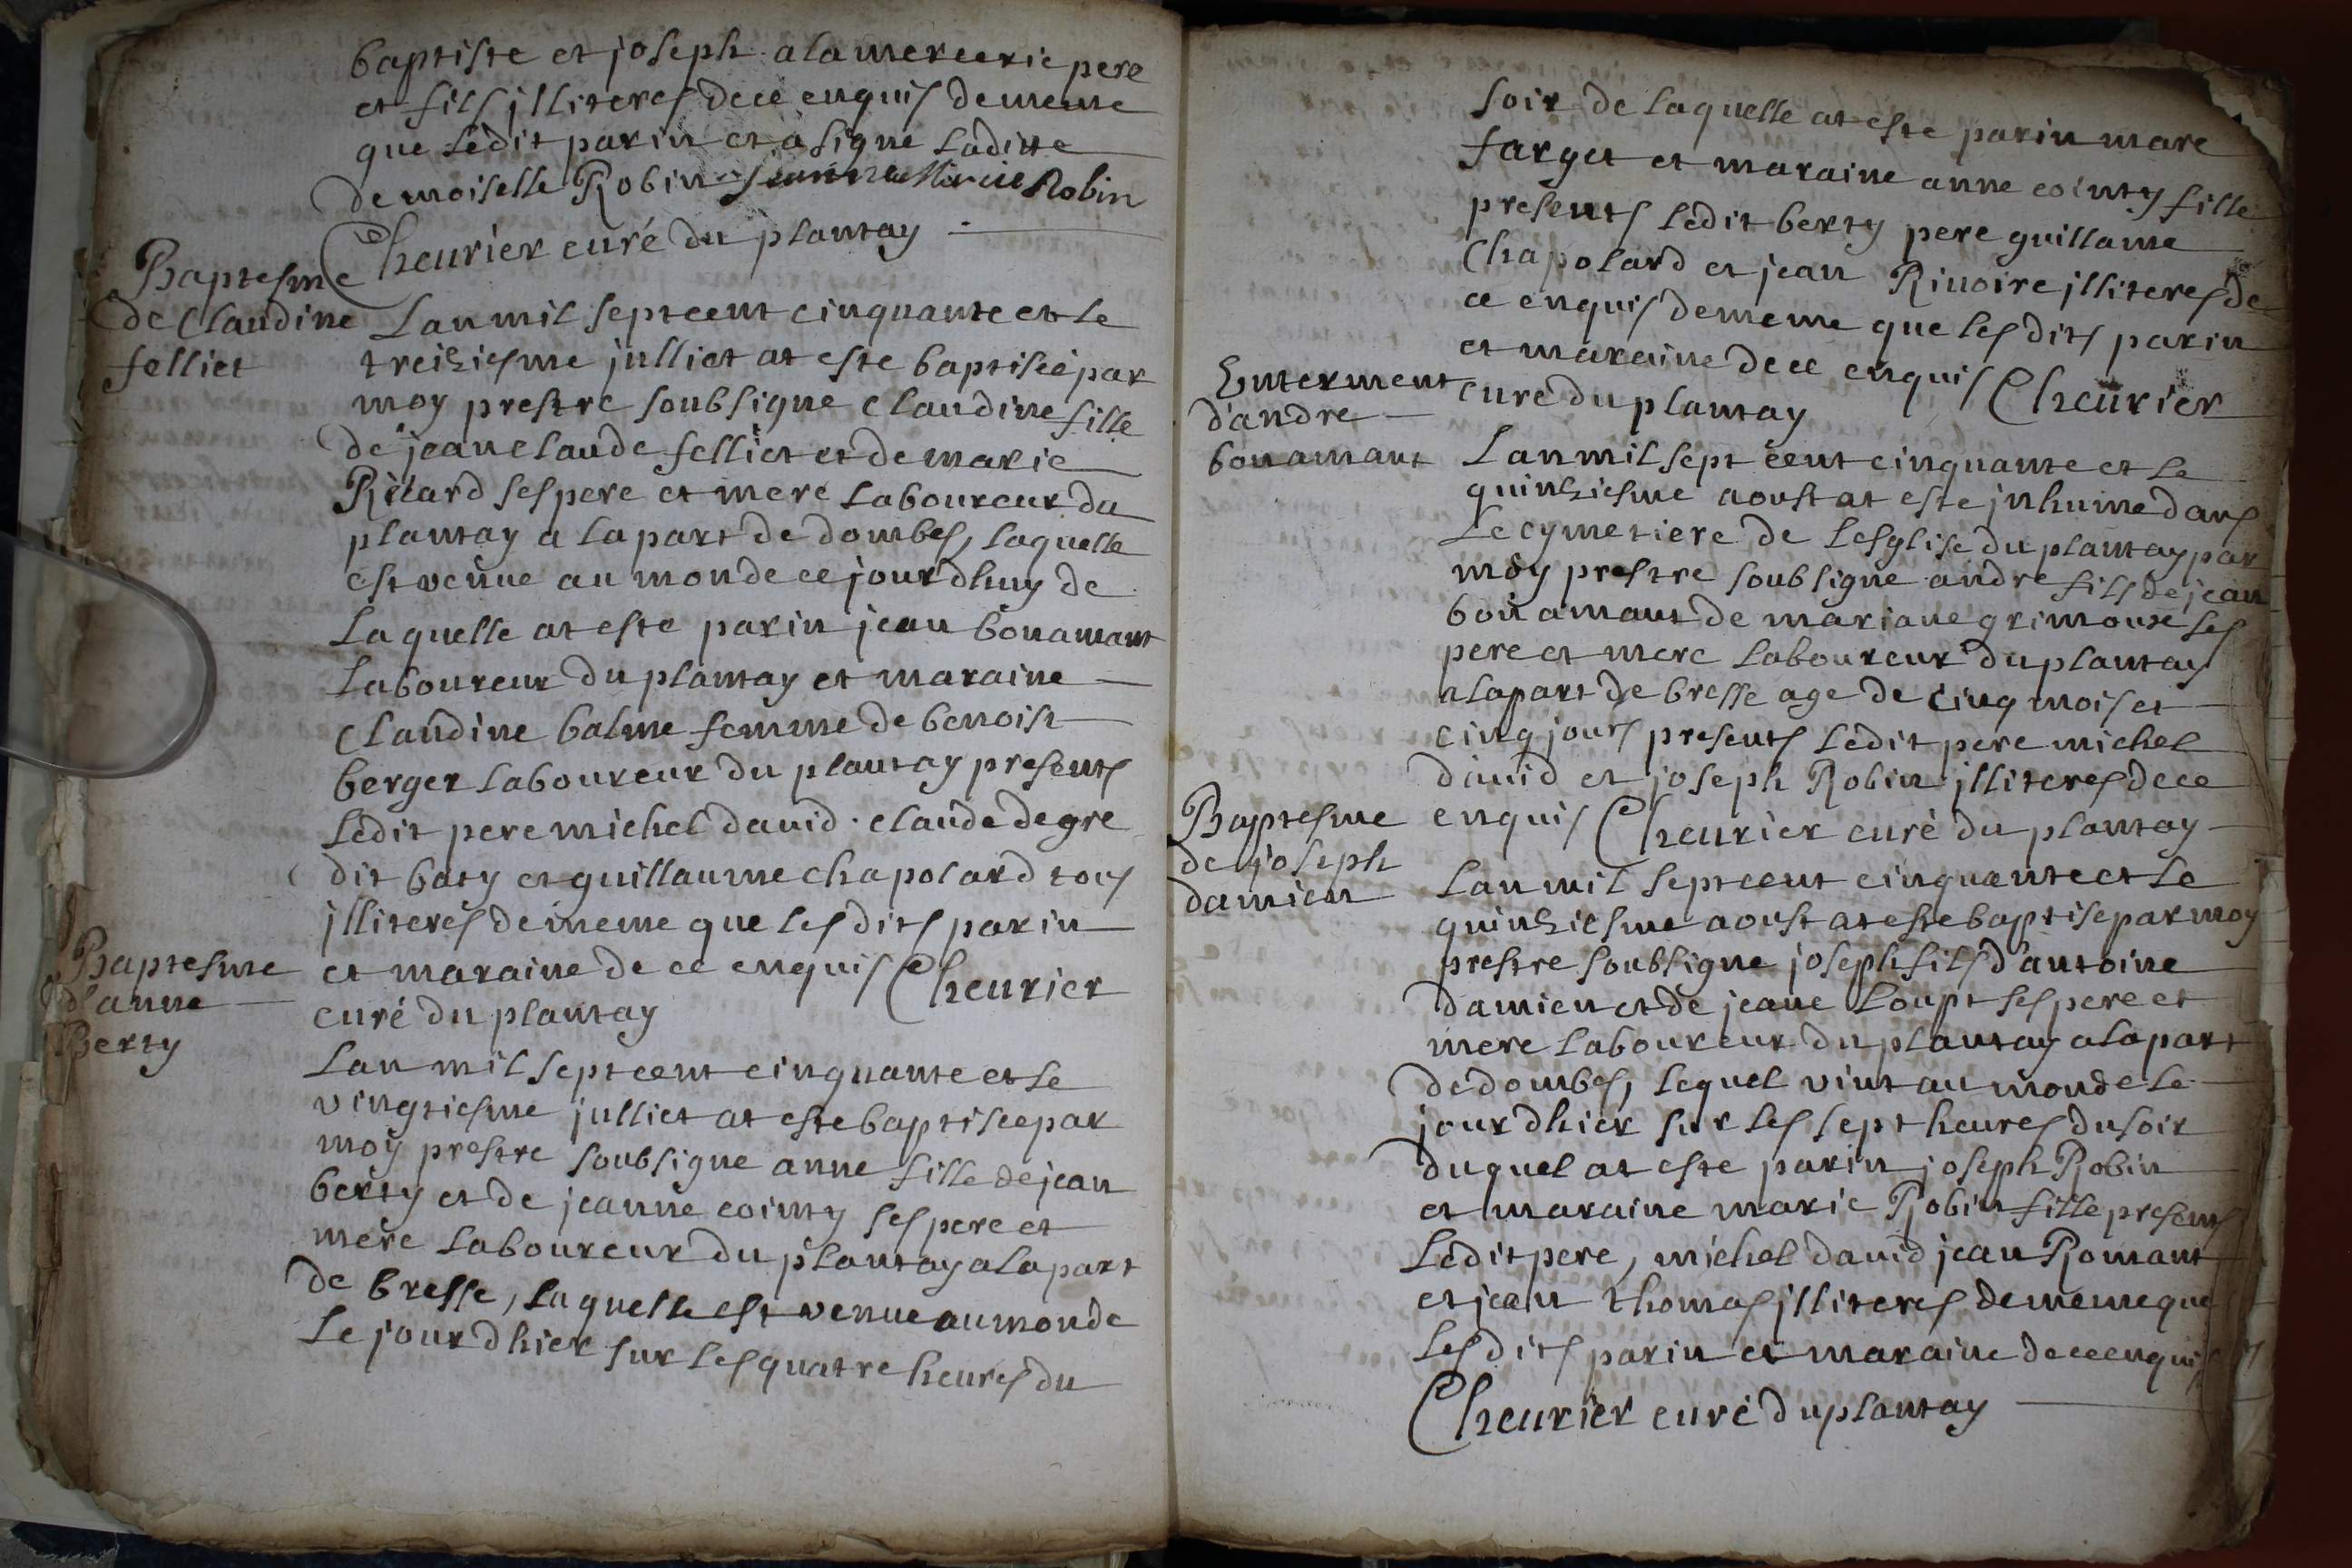 baptiste et joseph alamercerie pere
et fils jlliteres de ce enquis de meme
que ledit parin et à signé laditte
demoiselle Robin jeanne Marie Robin
Cheurier curé du plantay
Baptesme
de Claudine
felliet
Lan mil sept cent cinquante et le
treiziesme julliet at este baptiseé par
moy prestre soubsigne Claudine fille
de jean claude felliet et de marie
Rètard ses pere et mere laboureur du
plantay a la part de dombes, laquelle
est venue au monde ce jourdhuy de
laquelle at este parin jean bonamant
laboureur du plantay et maraine
Claudine balme femme de benoist
berger laboureur du plantay presents
ledit pere michel dauid claude degre
dit baty et guillaume chapolard tous
jlliteres de meme que les dits parin
et maraine de ce enquis Cheurier
curé du plantay
Baptesme
d'anne
Berty
Lan mil sept cent cinquante et le
vingtiesme julliet at este baptiseé par
moy prestre soubsigne anne fille de jean
berty et de jeanne cointy ses pere et
mere laboureur du plantay a la part
de bresse, laquelle est venue au monde
le jourdhier sur les quatre heures du
soir de laquelle at este parin marc
farget et maraine anne cointy fille
presents ledit berty pere guillame
Chapolard et jean Riuoire jlliteres de
ce enquis de meme que les dits parin
et maraine de ce enquis Cheurier
curé du plantay
Enterment
d'andre
bonamant
Lan mil sept cent cinquante et le
quinziesme aoust at este jnhume dans
le cymetiere de lesglise du plantay par
moy prestre soubsigne andre fils de jean
bonamant de mariane grimouxé ses
pere et mere laboureur du plantay
a la part de bresse age de cinq mois et
cinq jours presents ledit pere michel
dauid et joseph Robin jlliteres de ce
enquis Cheurier curé du plantay
Baptesme
de joseph
damien
Lan mil sept cent cinquante et le
quinziesme aoust at este baptise par moy
prestre soubsigne joseph fils d'antoine
damien et de jeane Loupt ses pere et
mere laboureur du plantay a la part
de dombes, lequel vint au monde le
jourdhier sur les sept heures du soir
duquel at este parin joseph Robin
et maraine marie Robin fille presents
ledit pere, michel dauid jean Romant
et jean thomas jlliteres de meme que
les dits parin et maraine de ce enquis
Cheurier curé du plantay